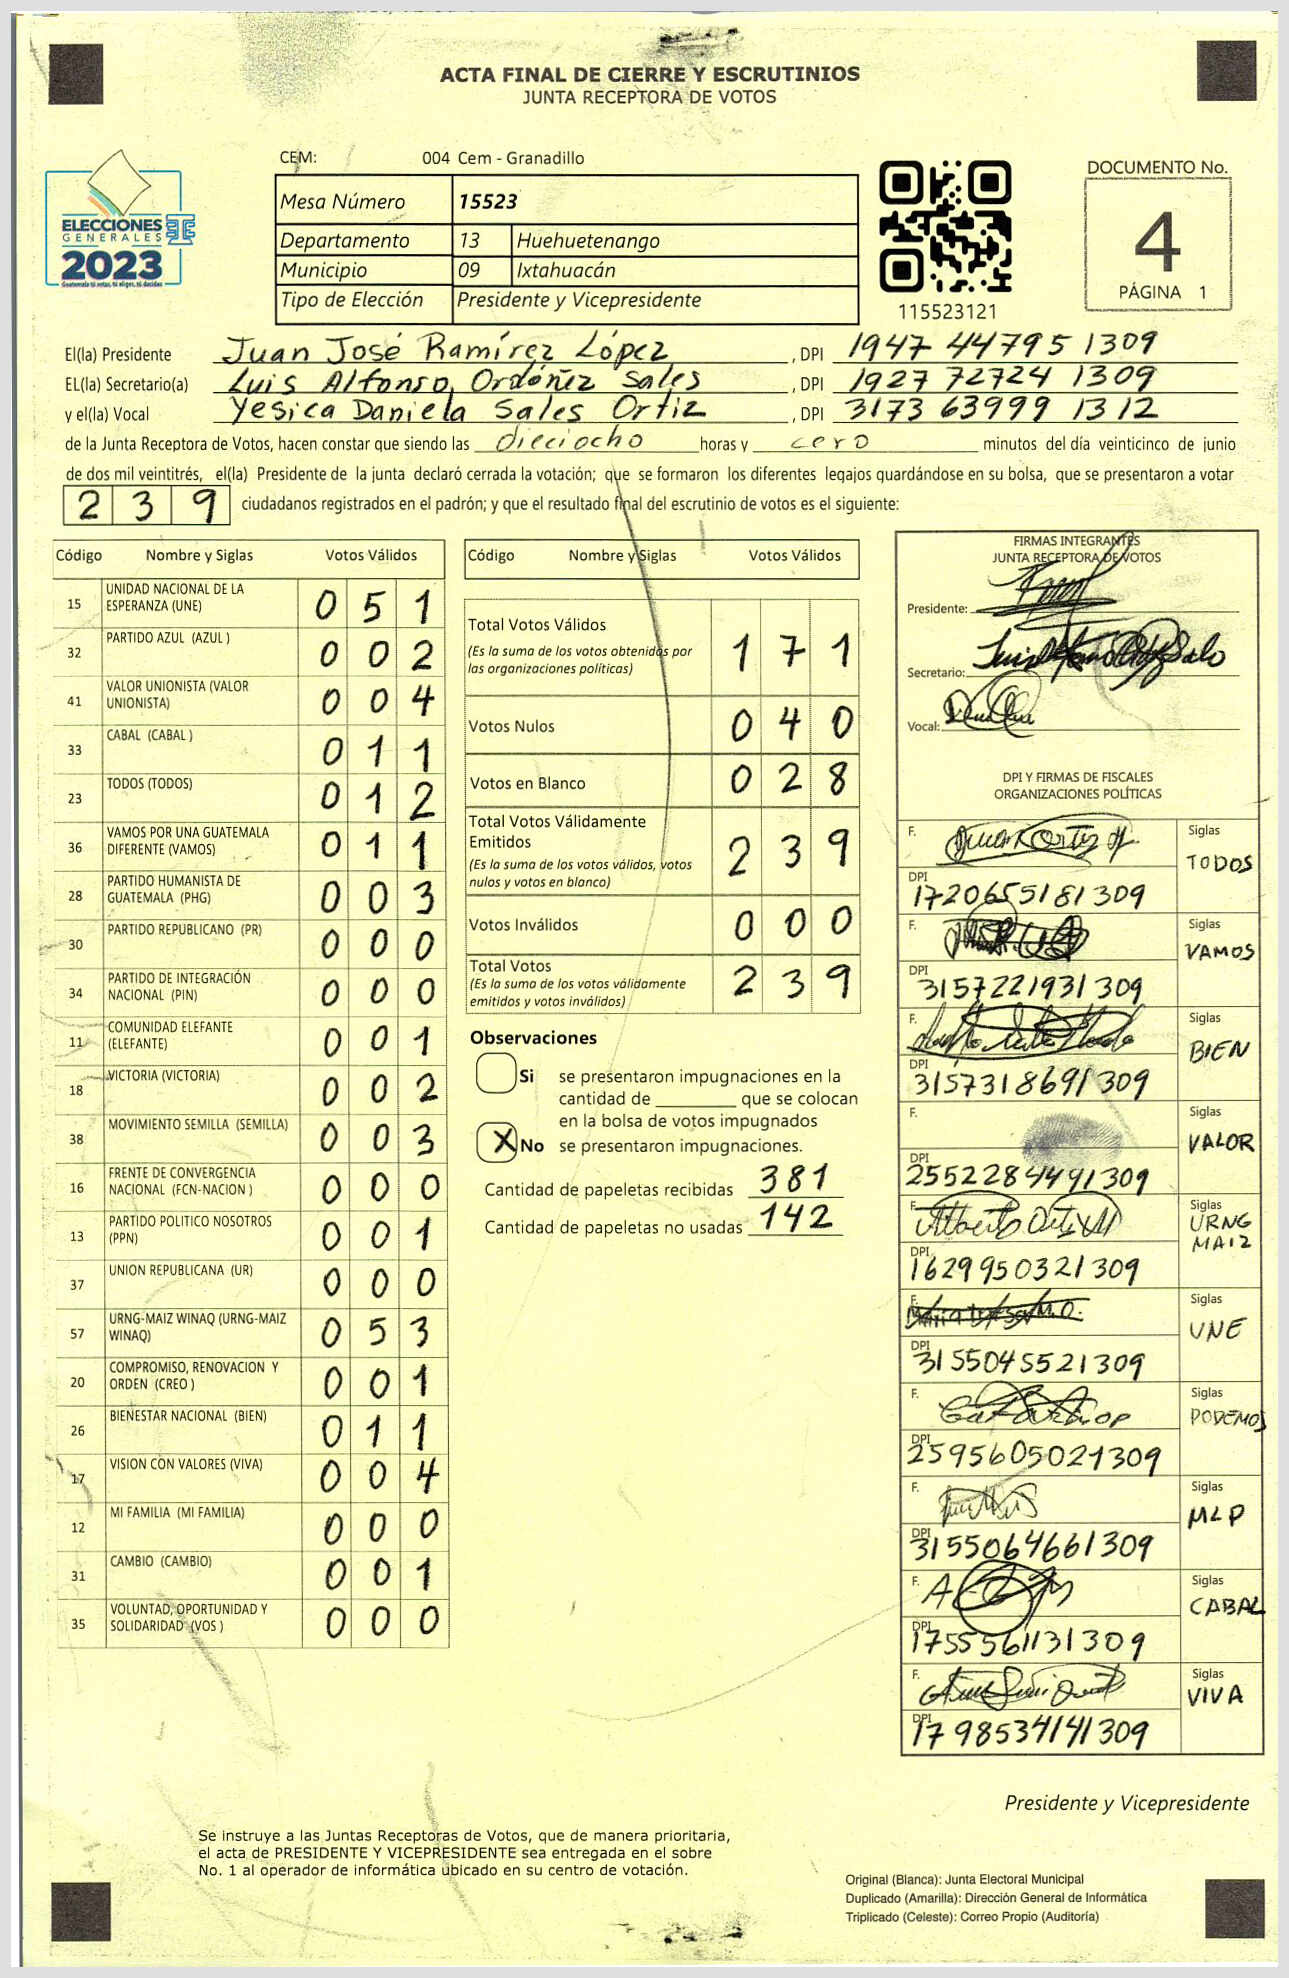 ACTA FINAL DE CIERRE Y ESCRUTINIOS
JUNTA RECEPTORA DE VOTOS
ELECCIONES
GENERALES
2023
Guatemala tú votas, tú eliges, tú decides
CEM: 004 Cem - Granadillo
Mesa Número 15523
Departamento 13 Huehuetenango
Municipio 09 Ixtahuacán
Tipo de Elección Presidente y Vicepresidente
115523121
DOCUMENTO No.
4
PÁGINA 1
El(la) Presidente Juan José Ramírez López , DPI 1947 44795 1309
EL(la) Secretario(a) Luis Alfonso Ordóñez Sales , DPI 1927 72724 1309
y el(la) Vocal Yesica Daniela Sales Ortiz , DPI 3173 63999 1312
de la Junta Receptora de Votos, hacen constar que siendo las dieciocho horas y cero minutos del día veinticinco de junio
de dos mil veintitrés, el(la) Presidente de la junta declaró cerrada la votación; que se formaron los diferentes legajos guardándose en su bolsa, que se presentaron a votar
239 ciudadanos registrados en el padrón; y que el resultado final del escrutinio de votos es el siguiente:
Código Nombre y Siglas Votos Válidos
15 UNIDAD NACIONAL DE LA ESPERANZA (UNE) 0 5 1
32 PARTIDO AZUL (AZUL ) 0 0 2
41 VALOR UNIONISTA (VALOR UNIONISTA) 0 0 4
33 CABAL (CABAL ) 0 1 1
23 TODOS (TODOS) 0 1 2
36 VAMOS POR UNA GUATEMALA DIFERENTE (VAMOS) 0 1 1
28 PARTIDO HUMANISTA DE GUATEMALA (PHG) 0 0 3
30 PARTIDO REPUBLICANO (PR) 0 0 0
34 PARTIDO DE INTEGRACIÓN NACIONAL (PIN) 0 0 0
11 COMUNIDAD ELEFANTE (ELEFANTE) 0 0 1
18 VICTORIA (VICTORIA) 0 0 2
38 MOVIMIENTO SEMILLA (SEMILLA) 0 0 3
16 FRENTE DE CONVERGENCIA NACIONAL (FCN-NACION ) 0 0 0
13 PARTIDO POLITICO NOSOTROS (PPN) 0 0 1
37 UNION REPUBLICANA (UR) 0 0 0
57 URNG-MAIZ WINAQ (URNG-MAIZ WINAQ) 0 5 3
20 COMPROMISO, RENOVACION Y ORDEN (CREO ) 0 0 1
26 BIENESTAR NACIONAL (BIEN) 0 1 1
17 VISION CON VALORES (VIVA) 0 0 4
12 MI FAMILIA (MI FAMILIA) 0 0 0
31 CAMBIO (CAMBIO) 0 0 1
35 VOLUNTAD, OPORTUNIDAD Y SOLIDARIDAD (VOS ) 0 0 0
Código Nombre y Siglas Votos Válidos
Total Votos Válidos 1 7 1
(Es la suma de los votos obtenidos por
las organizaciones políticas)
Votos Nulos 0 4 0
Votos en Blanco 0 2 8
Total Votos Válidamente
Emitidos 2 3 9
(Es la suma de los votos válidos, votos
nulos y votos en blanco)
Votos Inválidos 0 0 0
Total Votos 2 3 9
(Es la suma de los votos válidamente
emitidos y votos inválidos)
Observaciones
Si se presentaron impugnaciones en la
cantidad de ________ que se colocan
en la bolsa de votos impugnados
X No se presentaron impugnaciones.
Cantidad de papeletas recibidas 381
Cantidad de papeletas no usadas 142
FIRMAS INTEGRANTES
JUNTA RECEPTORA DE VOTOS
Presidente:
Secretario:
Vocal:
DPI Y FIRMAS DE FISCALES
ORGANIZACIONES POLÍTICAS
F. Siglas TODOS
DPI 1720655181309
F. Siglas VAMOS
DPI 3157221931309
F. Siglas BIEN
DPI 3157318691309
F. Siglas VALOR
DPI 2552284491309
F. Siglas URNG MAIZ
DPI 1629950321309
F. Siglas UNE
DPI 3155045521309
F. Siglas PODEMOS
DPI 2595605021309
F. Siglas MLP
DPI 3155064661309
F. Siglas CABAL
DPI 1755561131309
F. Siglas VIVA
DPI 1798534141309
Presidente y Vicepresidente
Se instruye a las Juntas Receptoras de Votos, que de manera prioritaria,
el acta de PRESIDENTE Y VICEPRESIDENTE sea entregada en el sobre
No. 1 al operador de informática ubicado en su centro de votación.
Original (Blanca): Junta Electoral Municipal
Duplicado (Amarilla): Dirección General de Informática
Triplicado (Celeste): Correo Propio (Auditoría)